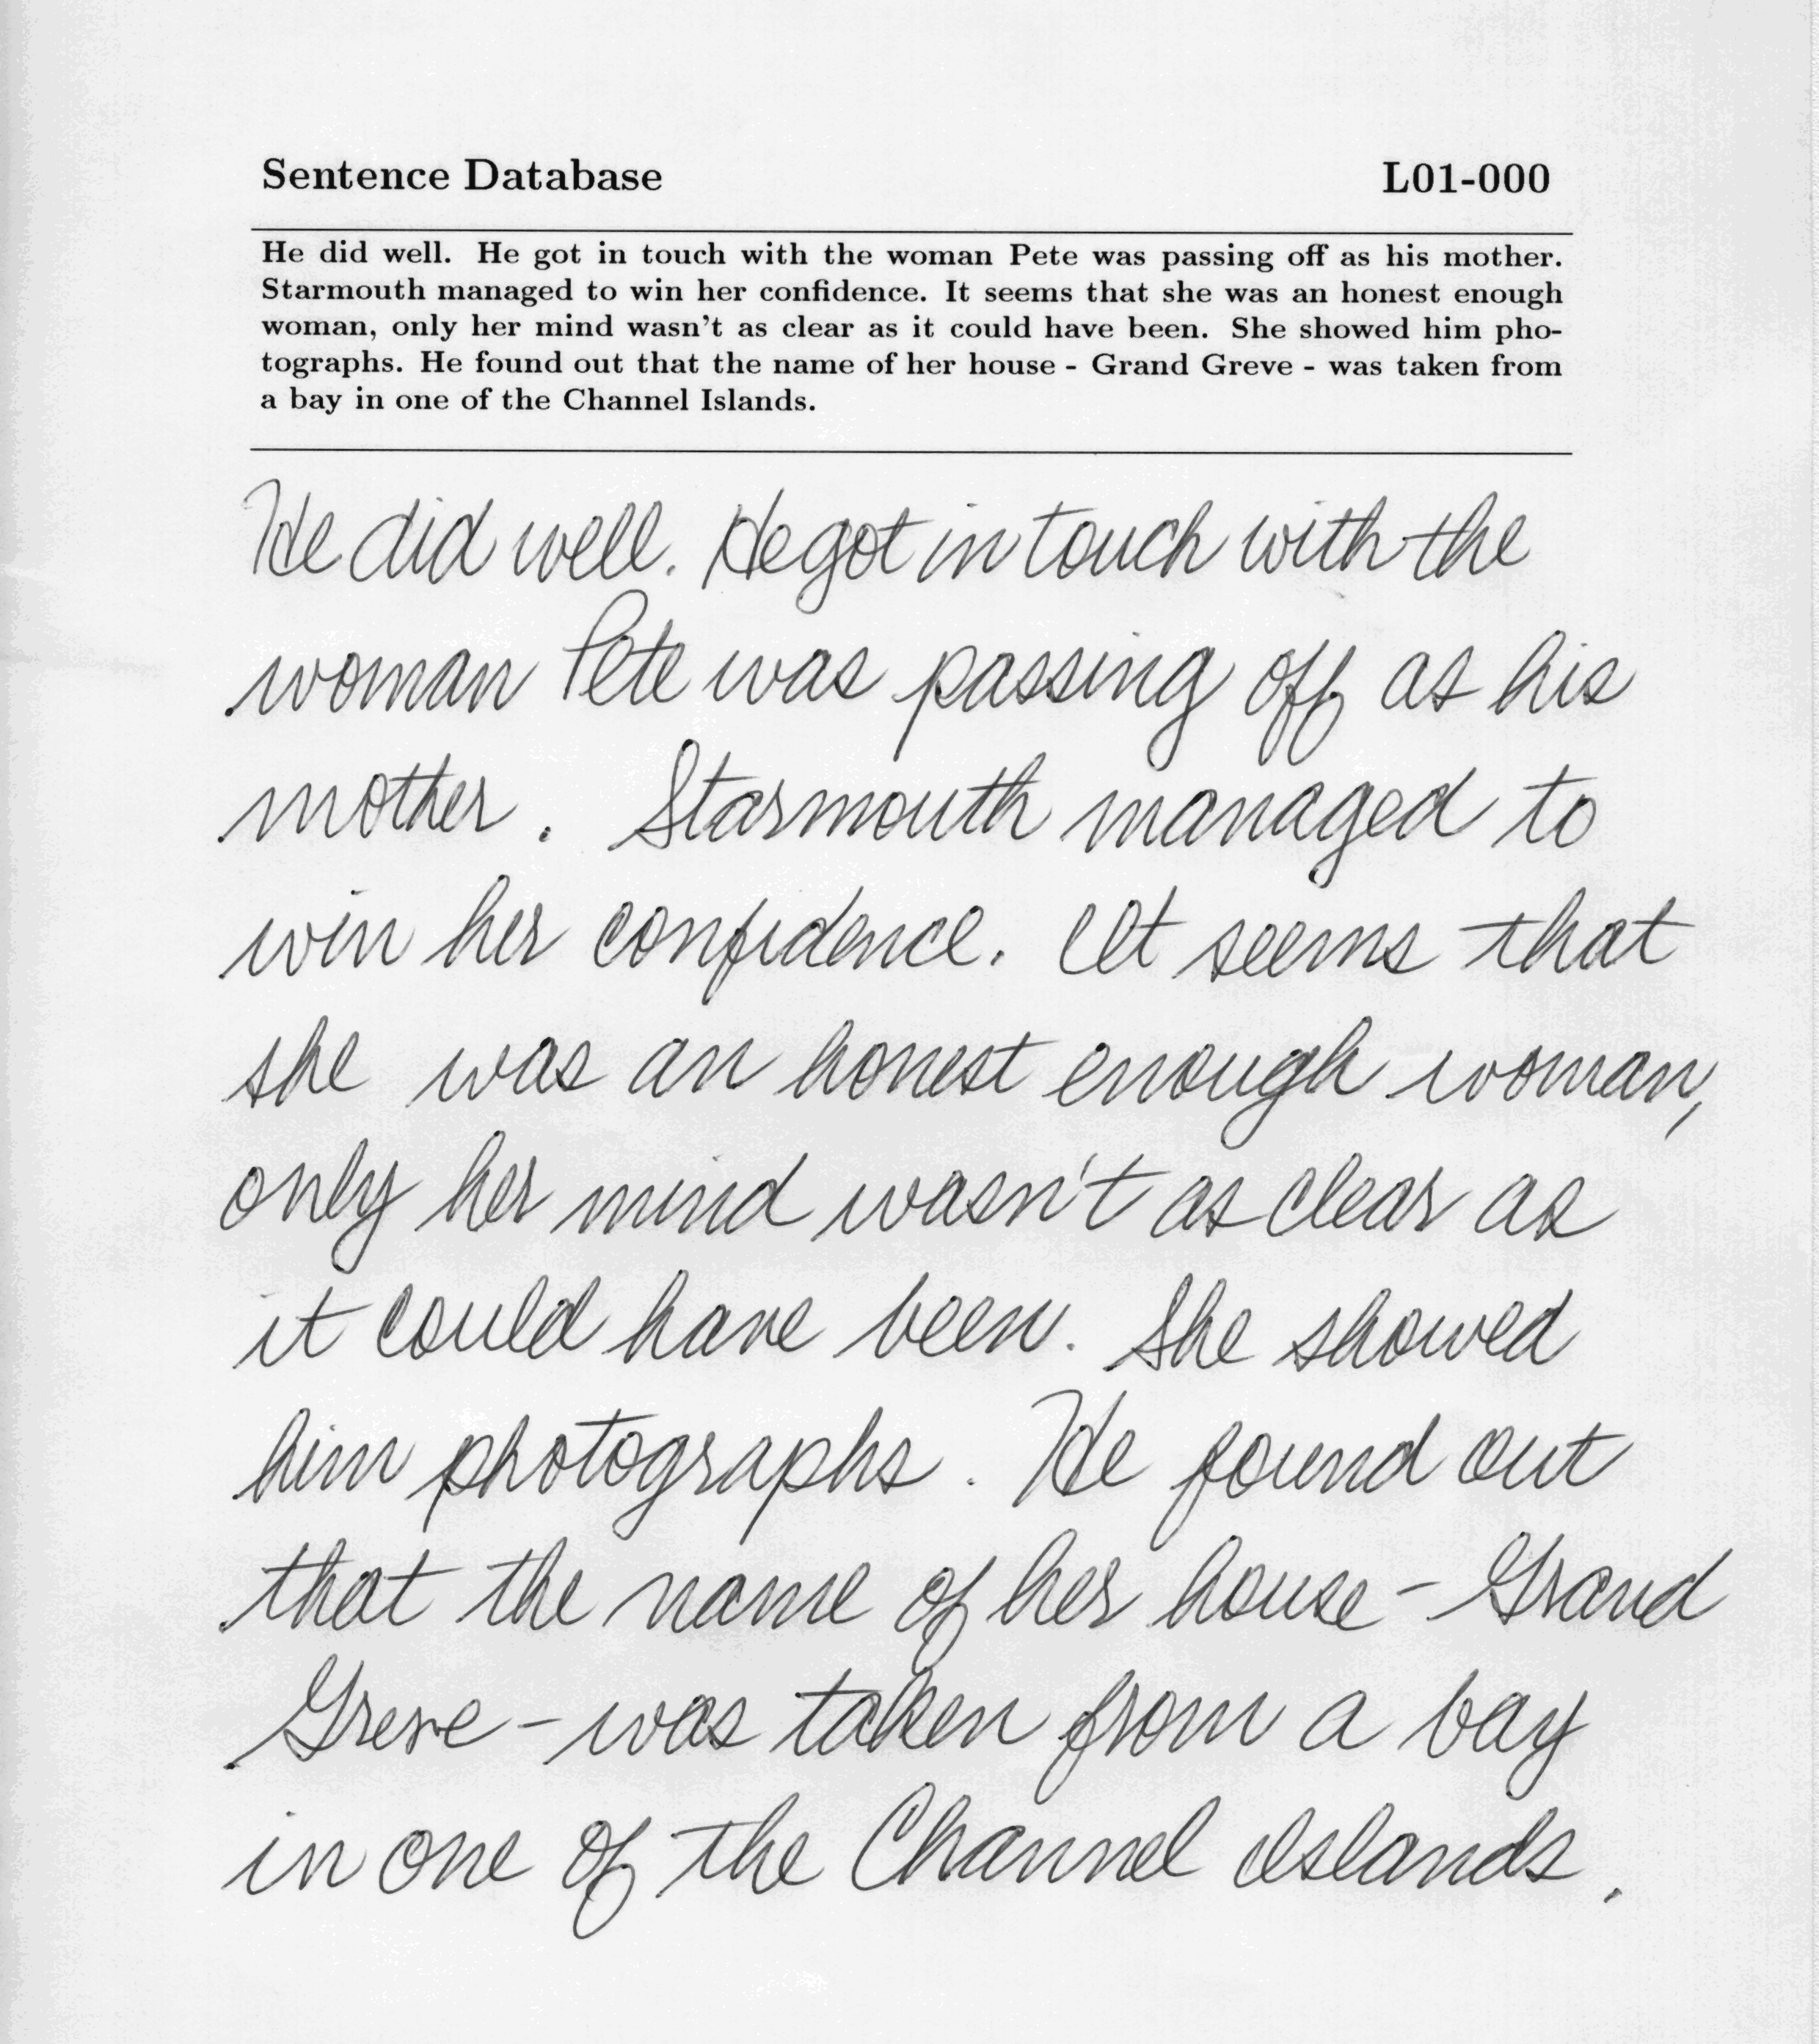 Sentence Database L01-000
He did well. He got in touch with the woman Pete was passing off as his mother.
Starmouth managed to win her confidence. It seems that she was an honest enough
woman, only her mind wasn't as clear as it could have been. She showed him pho-
tographs. He found out that the name of her house - Grand Greve - was taken from
a bay in one of the Channel Islands.
He did well. He got in touch with the
woman Pete was passing off as his
mother. Starmouth managed to
win her confidence. It seems that
she was an honest enough woman,
only her mind wasn't as clear as
it could have been. She showed
him photographs. He found out
that the name of her house - Grand
Greve - was taken from a bay
in one of the Channel Islands.